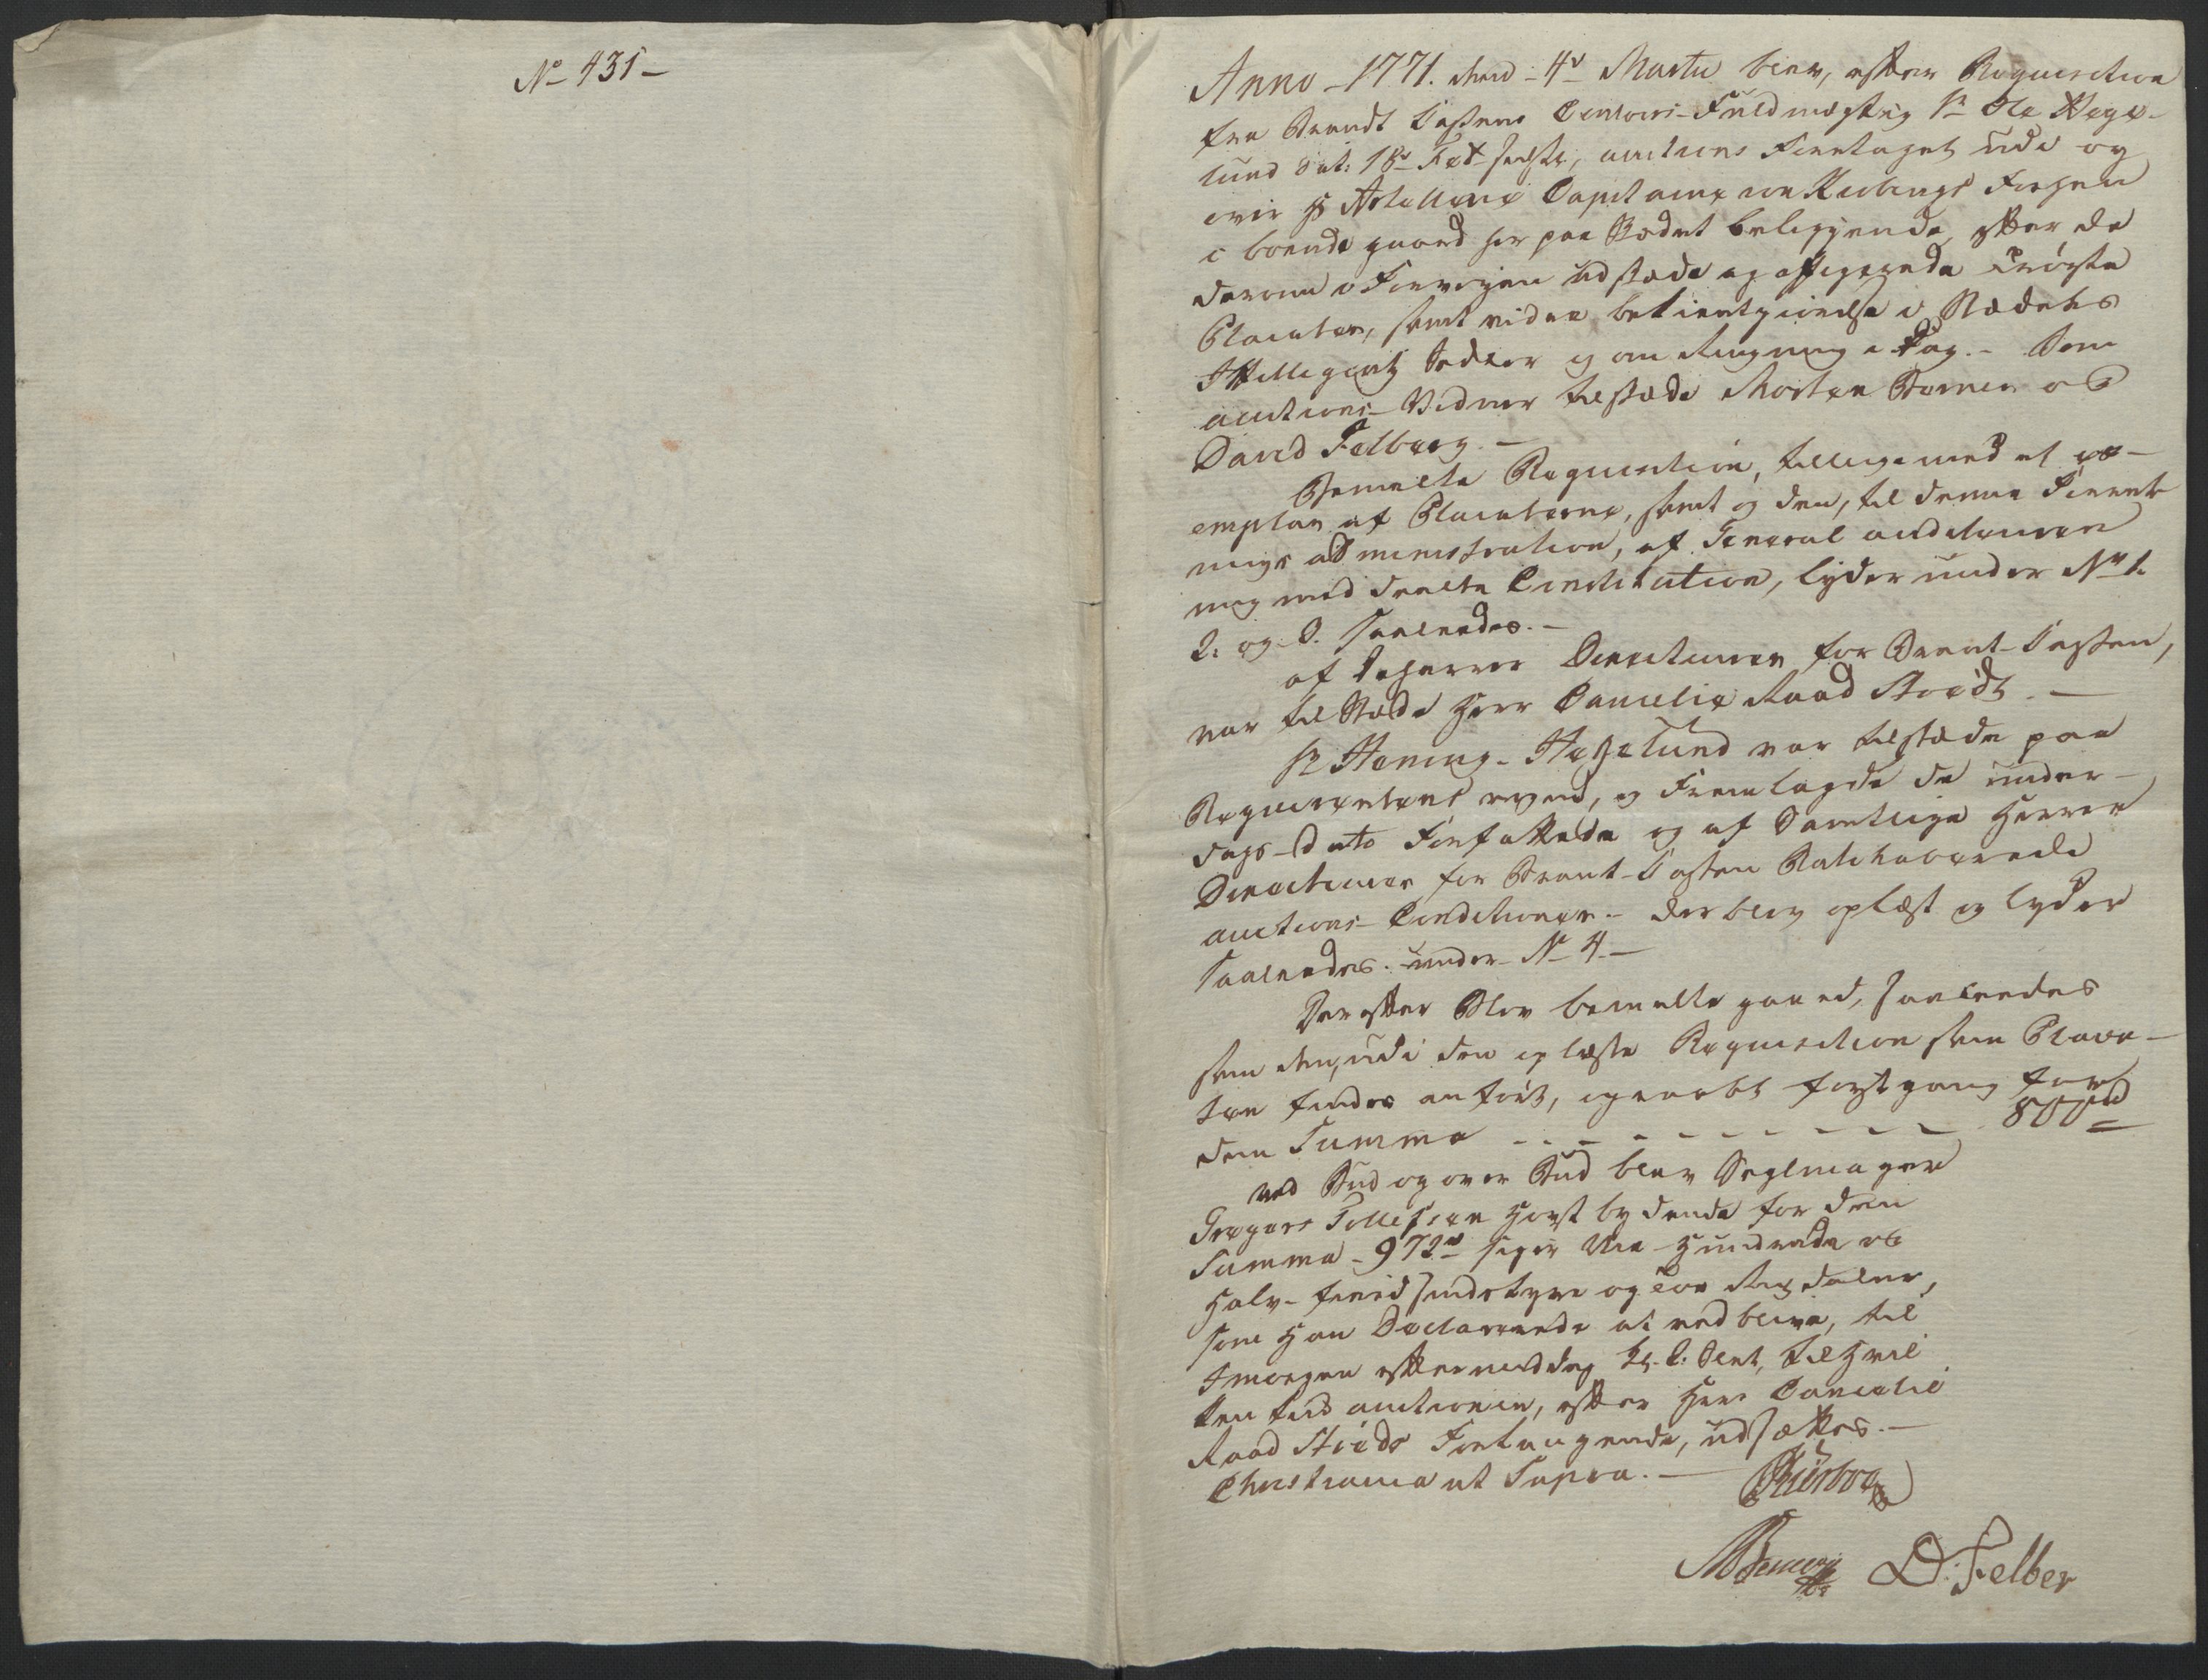 No 431 -
Anno - 1771. den - 4de Martii blev, efter Requisition
fra Brandt Cassens Contoirs-Fuldmægtig Sr Ole Hege-
lund dat: 18de Feb sidste, auctions Forretagets udi og
over Hr Artellerie Capitaine von Forhen
i boende gaard her paa Stædet beliggende, efter de
derom i Forveyen udstædde og affigerede trögte
Placater, samt videre bekientgiörelse i Stædets
Intelligentz Sedler og om Ringning i Dag. - Som
auctions-Vidner tilstæde Morten og
David Felberg. -
Bemelte Requisition, tilligemed et ex-
emplar af Placaterne, samt og den, til denne Forret-
nings administration, af General auditeuren
mig med deelte Constitution, lyder under No 1.
2. og 3. saaledes. -
af de Herrer Directeurer for Brant-Cassen,
var til Stæde Herr Cancelie Raad Stoedt. -
Sr Hening - Hegelund var tilstæde paa
Requirentens vegne, og Fremlagde de under-
dags-dato Forfattede og af Samtlige Herrer
Directeurer for Brant-Cassen Ratihaberede
auctions-Conditioner. - der blev oplæst og lyder
saaledes. under No 4. -
Derefter Blev bemelte gaard, saaledes
som den, udi den oplæste Requisition som Placa-
ten findes anfört, opraabt first gang for
den Summa - - - - - - - - - - 800 rd
ved Bud og over Bud blev Seglmager
Gregers Tollefsen Höyst bydende for den
Summa - 972 rd siger Nie - Hundrede og
Halv-fierdsindstyve og toe Rixdaler,
som Han Declarerede at ved blive, til
Imorgen eftermiddag Kl. 2. slet, til Hvil
ken tid auctionen, efter Herr Cancelie
Raad Stoeds Forlangende, udsættes. -
Christiania ut Supra. -
D: Felber